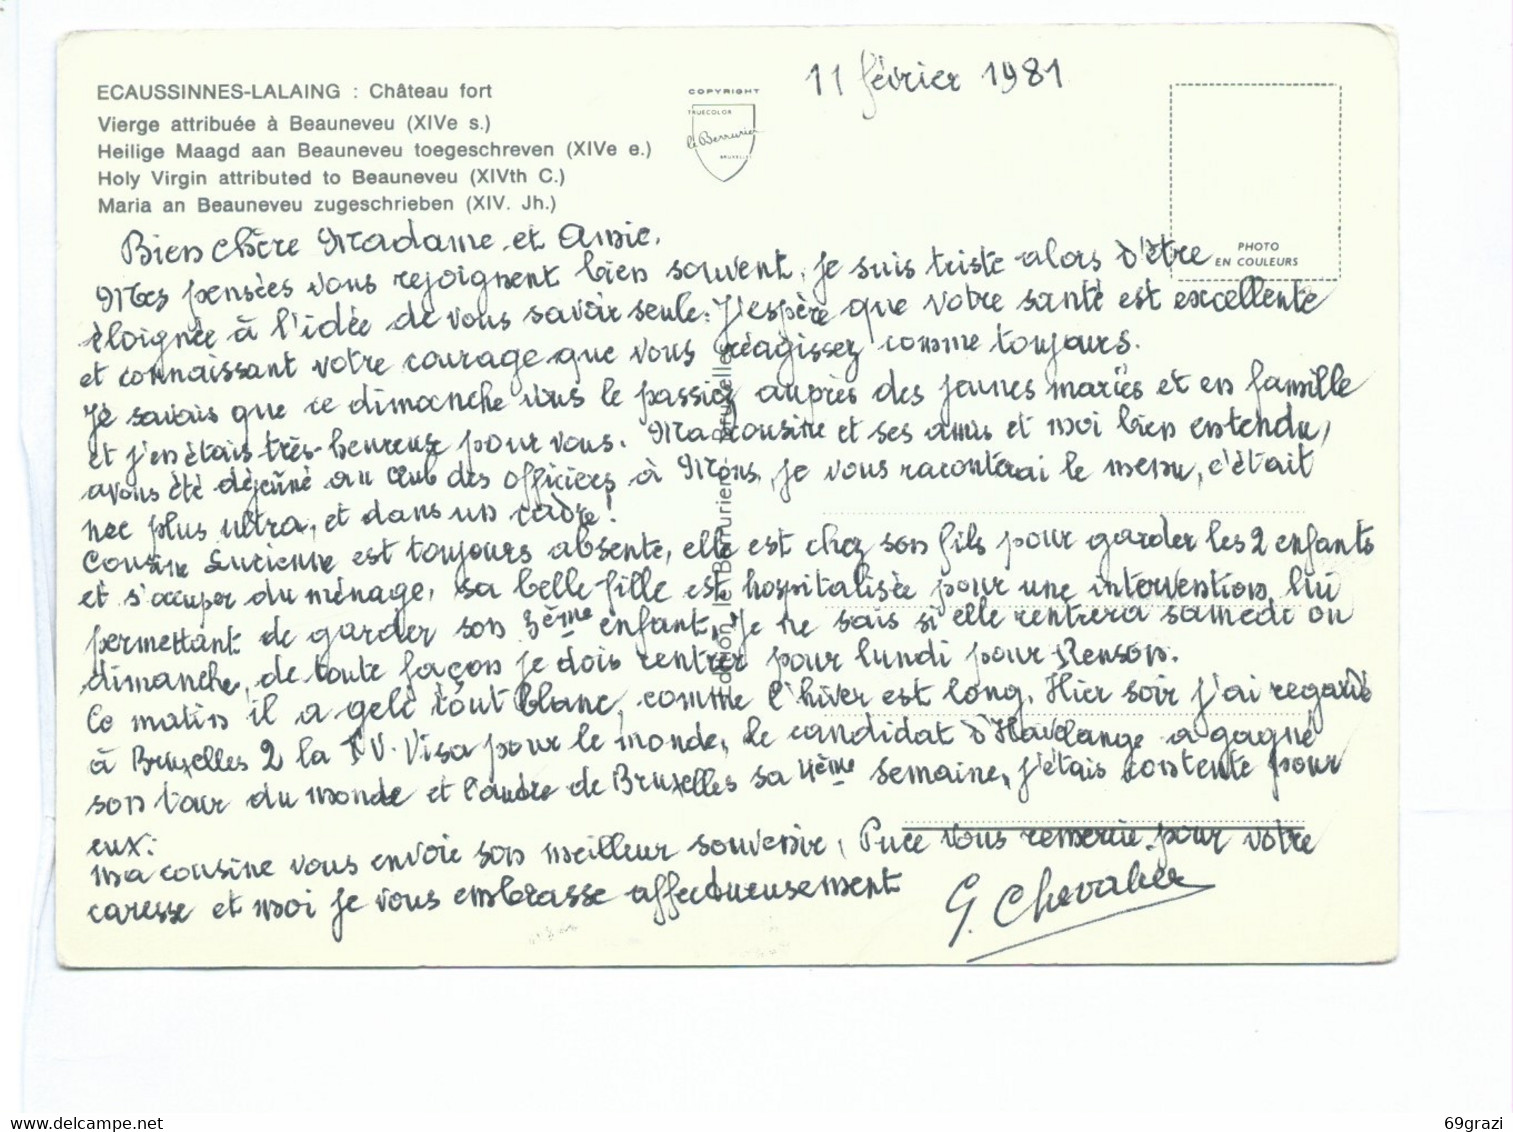 11 février 1981
ECAUSSINNES-LALAING : Château fort
Vierge attribuée à Beauneveu (XIVe s.)
Heilige Maagd aan Beauneveu toegeschreven (XIVe e.)
Holy Virgin attributed to Beauneveu (XIVth C.)
Maria an Beauneveu zugeschrieben (XIV. Jh.)
COPYRIGHT
TRUECOLOR
le Berrurier
BRUXELLES
PHOTO
EN COULEURS
Edition le Berrurier - Bruxelles
Bien chère Madame et Amie,
Mes pensées vous rejoignent bien souvent, je suis triste alors d'être
éloignée à l'idée de vous savoir seule. J'espère que votre santé est excellente
et connaissant votre courage que vous réagissez comme toujours.
Je savais que ce dimanche vous le passiez auprès des jeunes mariés et en famille
et j'en étais très heureuse pour vous. Ma cousine et ses amis et moi bien entendu,
avons été déjeuné au Club des Officiers à Mons, je vous raconterai le menu, c'était
nec plus ultra, et dans un cadre!
Cousine Lucienne est toujours absente, elle est chez son fils pour garder les 2 enfants
et s'occuper du ménage, sa belle-fille est hospitalisée pour une intervention lui
permettant de garder son 3ème enfant. Je ne sais si elle rentrera samedi ou
dimanche, de toute façon je dois rentrer pour lundi pour Renson.
Ce matin il a gelé tout blanc, comme l'hiver est long. Hier soir j'ai regardé
à Bruxelles 2 la TV. Visa pour le monde, le candidat d'Havelange a gagné
son tour du monde et l'autre de Bruxelles sa 4ème semaine, j'étais contente pour
eux.
Ma cousine vous envoie son meilleur souvenir, Puce vous remercie pour votre
caresse et moi je vous embrasse affectueusement
G. Chevalier
69grazi